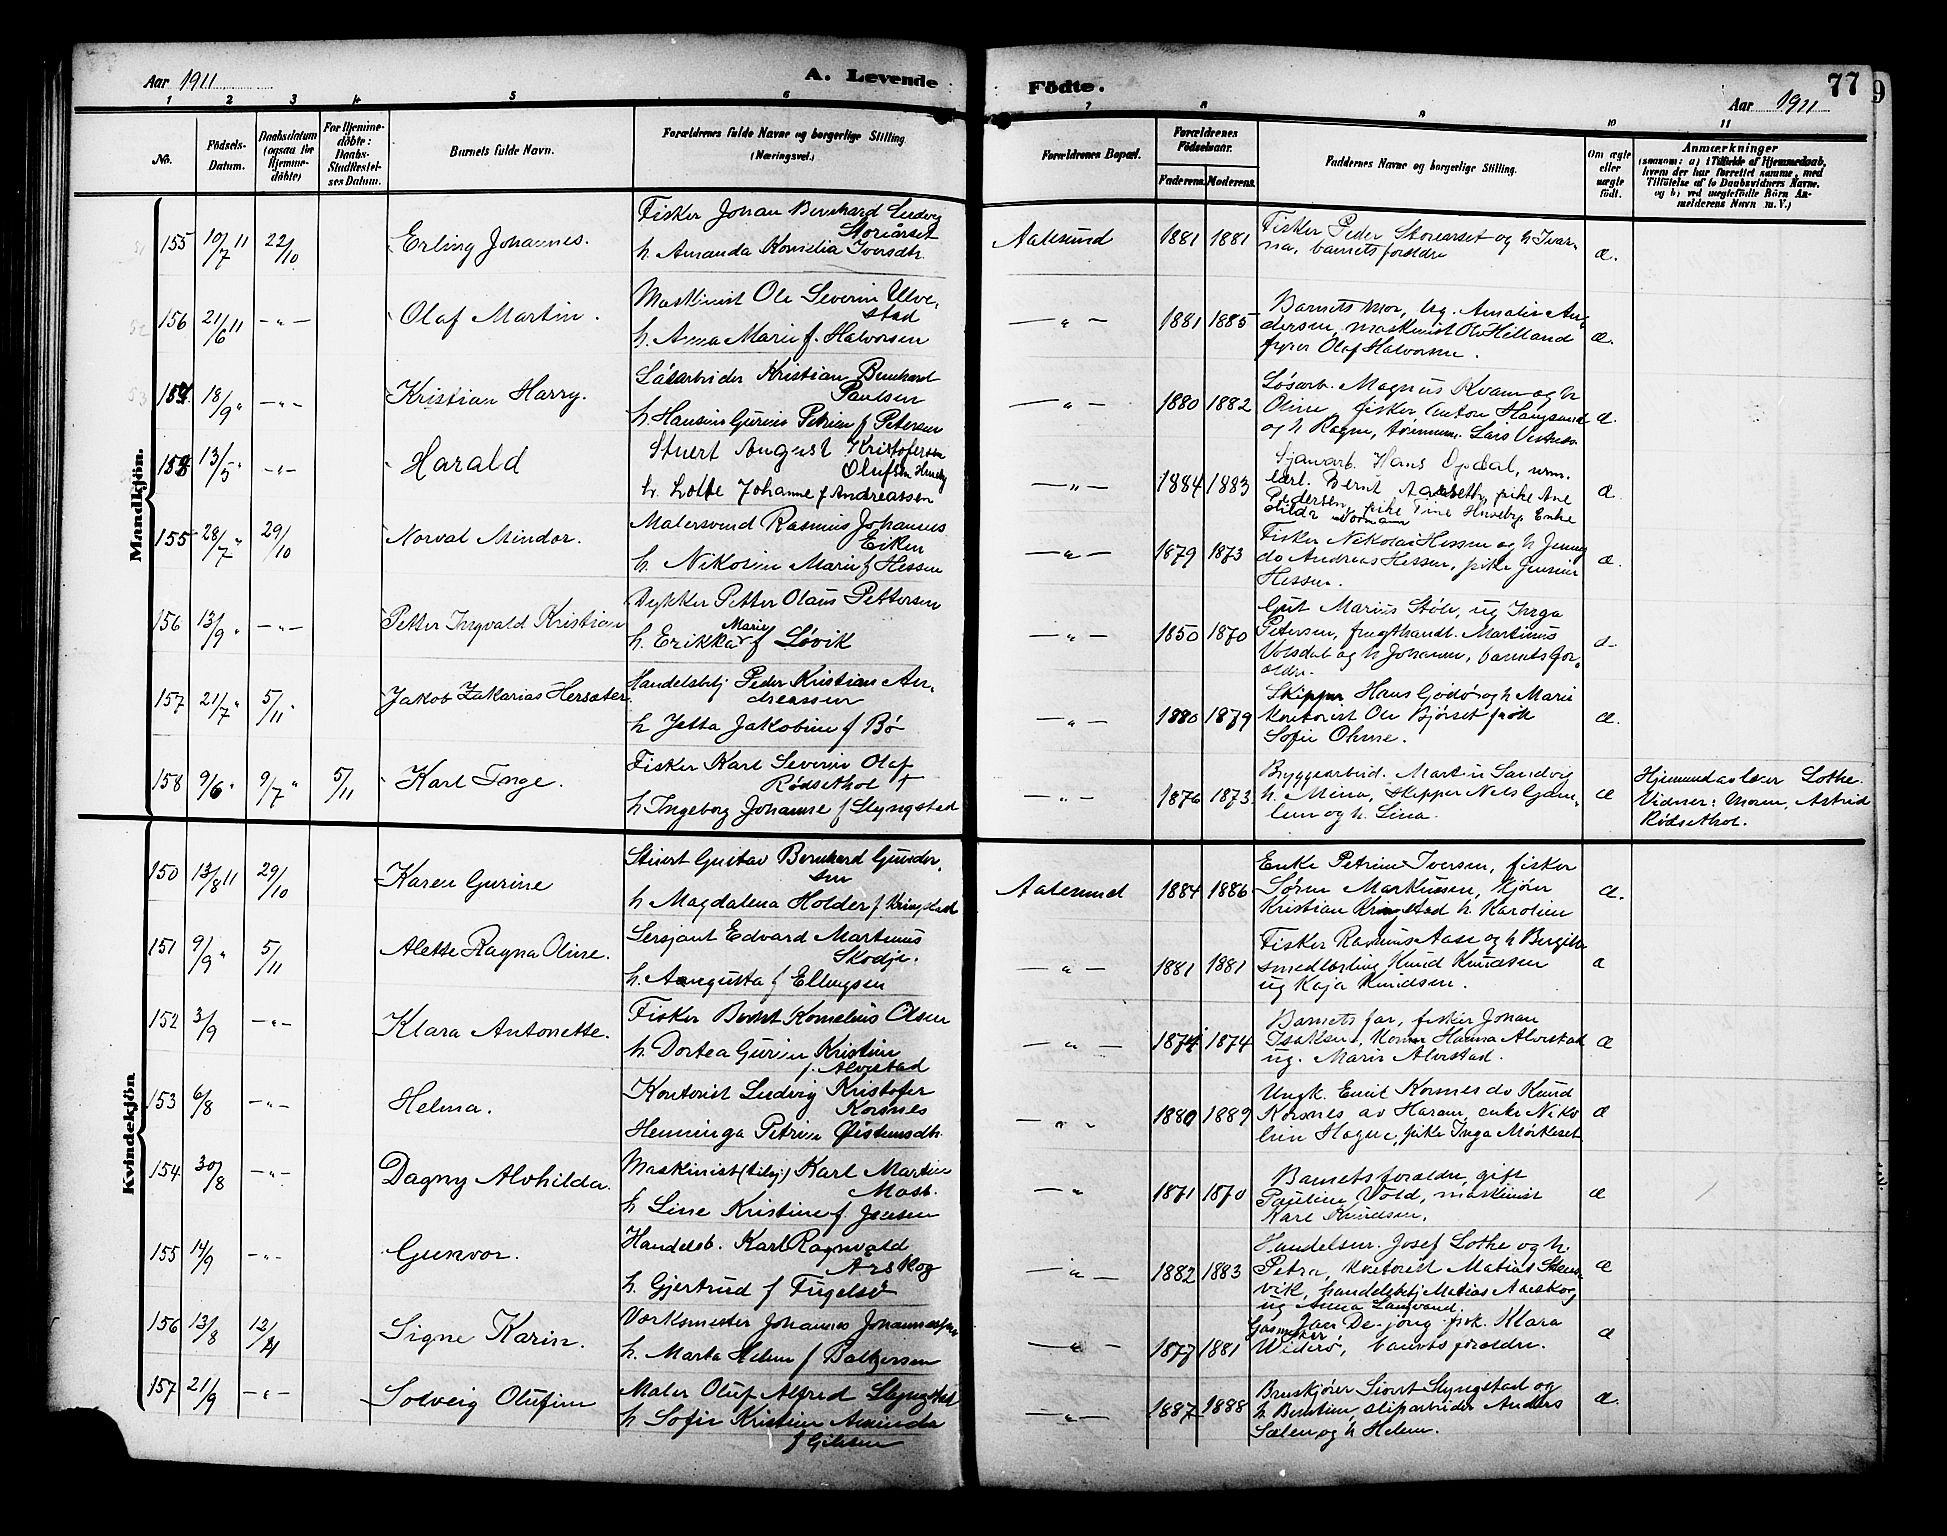 Aar 1911
A. Levende
Födte.
77
9
Aar 1911
1 2 3 4 5 6 7 8 9 10 11
No.
Födsels-
Datum.
Daabsdatum
(ogsaa for
Hjemme-
döbte)
For Hjemme-
döbte:
Daabs-
Stadfæstel-
ses Datum.
Barnets fulde Navn.
Forældrenes fulde Navne og borgerlige Stilling
(Næringsvei.)
Forældrenes Bopæl.
Forældrenes
Födselsaar.
Faderens. Moderens.
Faddernes Navne og borgerlige Stilling.
Om ægte
eller
uægte
födt.
Anmærkninger
(saasom: a) i Tilfælde af Hjemmedaab,
hvem der har forrettet samme, med
Tilföielse af to Daabsvidners Navne.
og b) ved uægtefödte Börn An-
melderens Navn m. V.)
Mandkjön.
155 10/7 11 22/10 Erling Johannes.
Fisker Johan Bernhard Ludvig
Storiårset
h. Amanda Kornelia Iversdtr.
Aalesund 1881 1881
Fisker Peder Storearset og h Ivar-
na, barnets forældre
æ.
156 21/6 11 —"— Olaf Martin.
Maskinist Ole Severin Ulve-
stad
h. Anna Marie f. Halvorsen
—"— 1881 1885
Barnets mor, ug. Amalie An-
dersen, maskinist Ole Hilland
fyrer Olaf Halvorsen.
æ.
157 18/9 " —"— Kristian Harry.
Løsarbeider Kristian Bernhard
Paulsen
h. Hansine Gurine Petrine f Petersen
—"— 1880 1882
Løsarb. Magnus Kvam og h
Oline, fisker Anton Haugsund
og h Ragna, tømmerm. Lars Vestnes
æ.
158 13/5 " —"— Harald
Stuert August Kristofersen
Olufsen
h. Lotte Johanne f Andreassen
—"— 1884 1883
Sjauarb. Hans Opdal,
Bernt Aarseth, pike Ane
Pedersen, pike Tine Huseby, Enke
Hilda Normann
æ
155 28/7 " 29/10 Norval Mindor.
Malersvend Rasmus Johannes
Eiken
h. Nikoline Marie f Hessen
—"— 1879 1873
Fisker Nikolai Hessen og h Jenny
do Andreas Hessen, pike Jensine
Hessen.
æ.
156 13/9 " —"— Petter Ingvald Kristian
Petter Olaus Pettersen
Marie
h. Erikka f Løvik
—"— 1850 1870
Gut Marius Støle, ug Inga
Petersen, frugthandl. Martinus
Volsdal og h Johanne, barnets for-
ældre.
æ
157 21/7 " 5/11 " Jakob Zakarias Hersæter
Handelsbetj Peder Kristian An-
dreassen
h Jetta Jakobine f Bø
—"— 1880 1879
Skipper Hans Godø og h Marie
kontorist Ole Bjørset frøk
Sofie Ohme.
æ.
158 9/6 " 9/7 " 5/11 Karl Inge.
Fisker Karl Severin Olaf
Rødsethol †
h Ingeborg Johanne f Slyngstad
—"— 1876 1873.
Bryggearbeid. Martin Sandvig
h. Mina, skipper Nels Gjæm-
lem og h. Lina.
æ
Hjemmed av lærer Lothe.
Vidner: Moren, Astrid
Rødsethol.
Kvindekjön
150 13/8 11 29/10 Karen Gurine
Stuert Gustav Bernhard Gunder-
sen
h Magdalena Holder f Kringstad
Aalesund 1884 1886
Enke Petrine Iversen, fisker
Søren Markussen,
Kristian Kringstad h. Karoline
æ.
151 9/9 " 5/11 Alette Ragna Oline.
Sersjant Edvard Martinus
Skodje.
h. Augusta f Ellingsen
—"— 1881 1881
Fisker Rasmus Aase og h Bergitte
smedlærling Knud Knudsen
ug Kaja Knudsen.
æ
152 3/9 —"— Klara Antonette.
Fisker Bernt Kornelius Olsen
h. Dortea Gurine Kristine
f. Alvestad
—"— 1874 1874
Barnets far, fisker Johan
Isaksen, Hanna Alvestad
ug. Marie Alvestad.
æ
153 6/8 —"— Helma.
Kontorist Ludvig Kristofer
Korsnes
Henninga Petrine Øistensdtr.
—"— 1880 1889
Ungk. Emil Korsnes do Knud
Korsnes av Haram, enke Niko-
line Hagen, pike Inga Mørkeset
æ
154 30/8 —"— Dagny Alvhilda.
Maskinist (lilej) Karl Martin
Mosb.
h Line Kristine f. Jensen
—"— 1871 1870
Barnets forældre, gift
Pauline Vold, maskinist
Karl Knudsen.
æ
155 14/9 —"— Gunvor.
Handelsb. Karl Ragnvald
Arskog
h. Gjertrud f Fugelsø
—"— 1882 1883
Handelsm. Josef Lothe og h.
Petra, kontorist Matias
vik, handelsbetj Matias Aarskog
ug Anna Langvand.
æ
156 13/8 12/11 Signe Karin.
Verksmester Johannes Johannessen
h. Marta Helene f Baltzersen
—"— 1877 1881
Gasmester Jan De-jong frøk. Klara
Widerø, barnets forældre.
æ
157 21/9 —"— Solveig Olufine
Maler Oluf Alfred Slyngstad
h Sofie Kristine Amanda
f Gilesen
—"— 1887 1888
Bruskjører Sivert Slyngstad og
h Berntine, sliparbeider Anders
Sælen og h Helene.
æ.